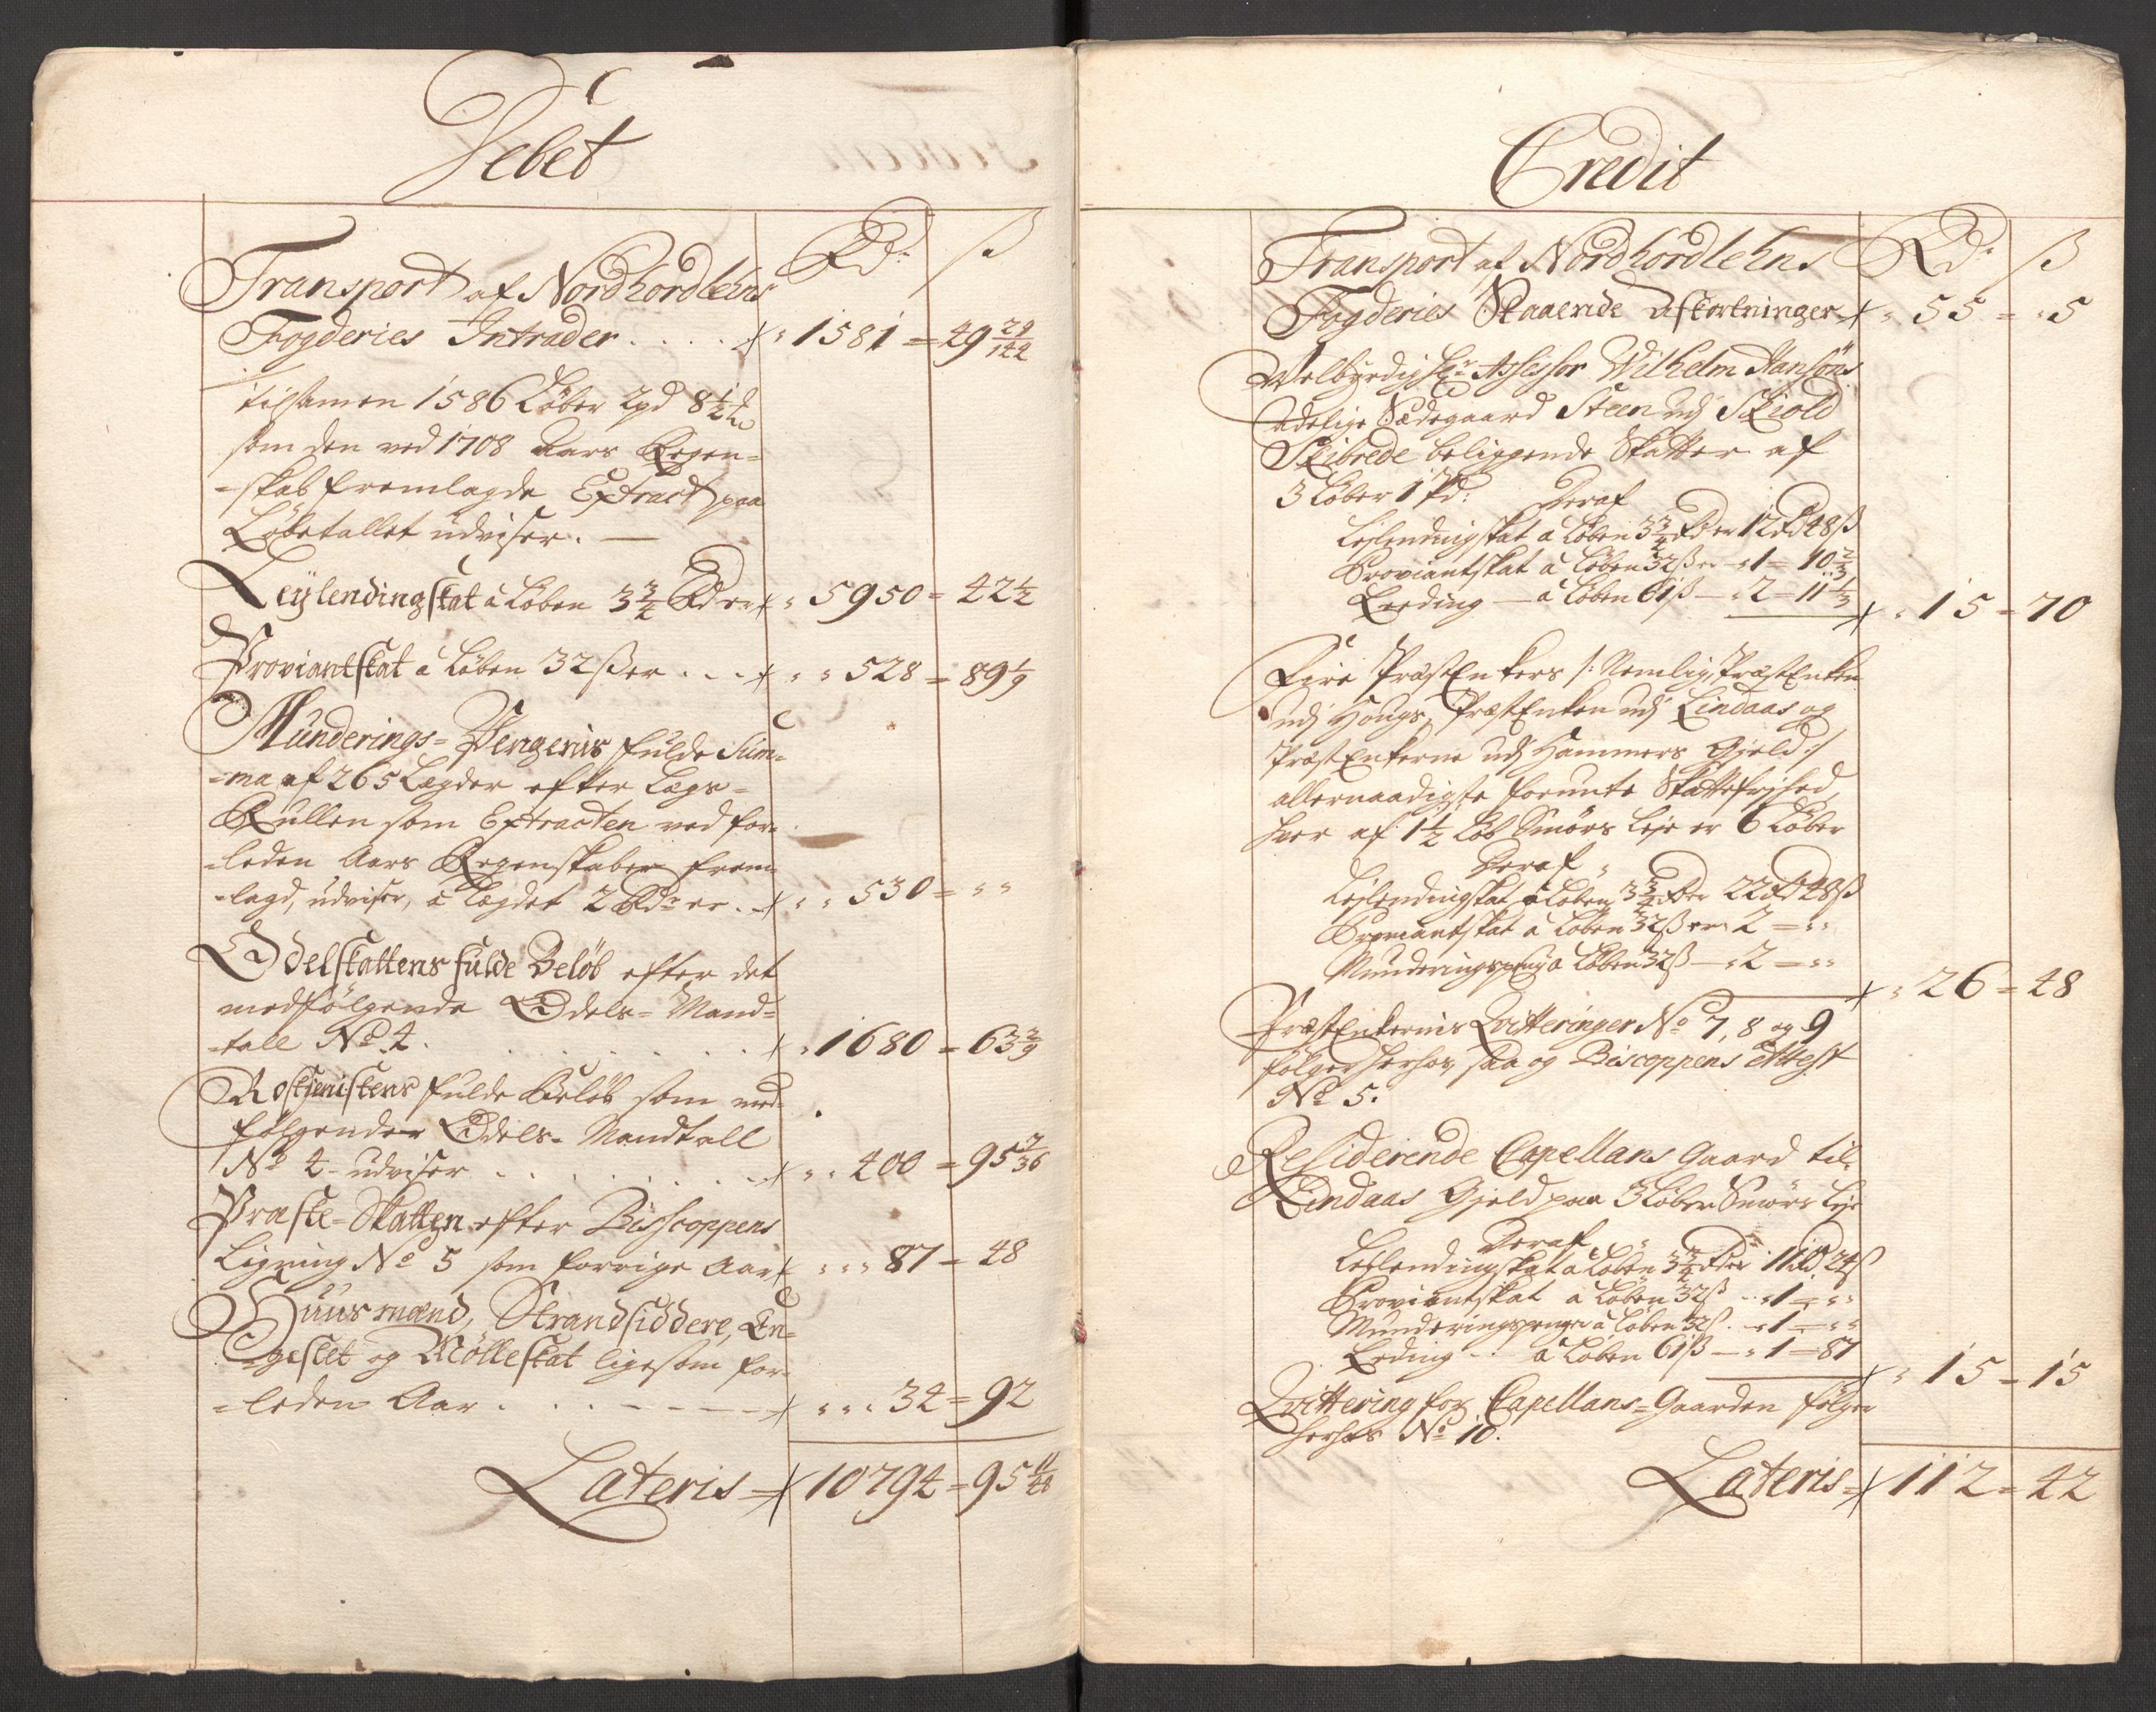 Debet
Rdr ß
Transport af Nordhordlehns
Fogderies Intrader . . . . 1581 = 49 29/144
tilsamen 1586 Løber 2pd 8½ ℔
som den ved 1708 Aars Regen=
=skab fremlagde Extract paa
Løbetallet udviser. —
Leÿlendingskat â Løben 3¾ Rdr er 5950 = 42½
Proviantskat â Løben 32 ß er . . . 528 = 89 1/9
Munderings=Pengenis fulde Sum=
=ma af 265 Lægder efter Lægs=
Rullen som Extracten ved for=
=leden Aars Regenskaber frem=
=lagd, udviser, â Legdet 2 Rdr er . 530 = " "
Odelskattens fulde Beløb efter det
medfølgende Odels= Mand=
=tall No 4. . . . . . . 1680 = 63 2/9
Rostjenistens fulde Beløb som med=
følgender Odels= Mandtall
No 4 udviser . . . . . . 400 = 95 7/36
Præste=Skatten efter Bisscoppens
Ligning No 5 som forrige Aar 87 = 48
Huusmænd, Strandsiddere, En=
=geslet og Møllеskat ligesom for=
=leden Aar . . . . 34 = 92
Lateris 10794 = 95 11/48
Credit
Rdr ß
Transport af Nordhordlehns
Fogderies Staaende Afkortninger 55 = 5
Welbyrdig Hr Assessor Wilhelm Hansøns
Adelige Sædegaard Steen udj Skiold
Skibrede beliggende Skatter af
3 Løber 1 Pd: Deraf
Leylendingskat â Løben 3¾ Rdr er 12 Rd 48 ß
Proviantskat â Løben 32 ß er 1 = 10 2/3
Leeding — â Løben 61 ß — 2 = 11 1/3
15 = 70
Fire PræstEnkers /: Nemlig PræstEnken
udj Hougs, PræstEnken udj Lindaas og
PræstEnkerne udj Hammers Gjeld :/
allernaadigste forunte Skattefrjhed,
hver af 1½ Løb Smørs Leje er 6 Løber
Deraf
Leylendingskat â Løben 3¾ Rdr er 22 Rd 48 ß
Proviantskat â Løben 32 ß er 2 = " "
Munderingspeng â Løben 32 ß — 2 = " "
26 = 48
PræstEnkernis Qvitteringer No 7, 8 og 9
følger herhos, saa og Biscoppens Attest
No 5.
Residerende Capellans Gaard til
Lindaas Gjeld paa 3 Løber Smørs Leje
Deraf
Leylendingskat â Løben 3¾ Rdr er 11 Rd 24 ß
Proviantskat â Løben 32 ß . . 1 = " "
Munderingspenge â Løben 32 ß . 1 = " "
Leding . . â Løben 61 ß — 1 = 87
15 = 15
Qvittering for Capellans=Gaarden følger
herhos No 10.
Lateris 112 = 42